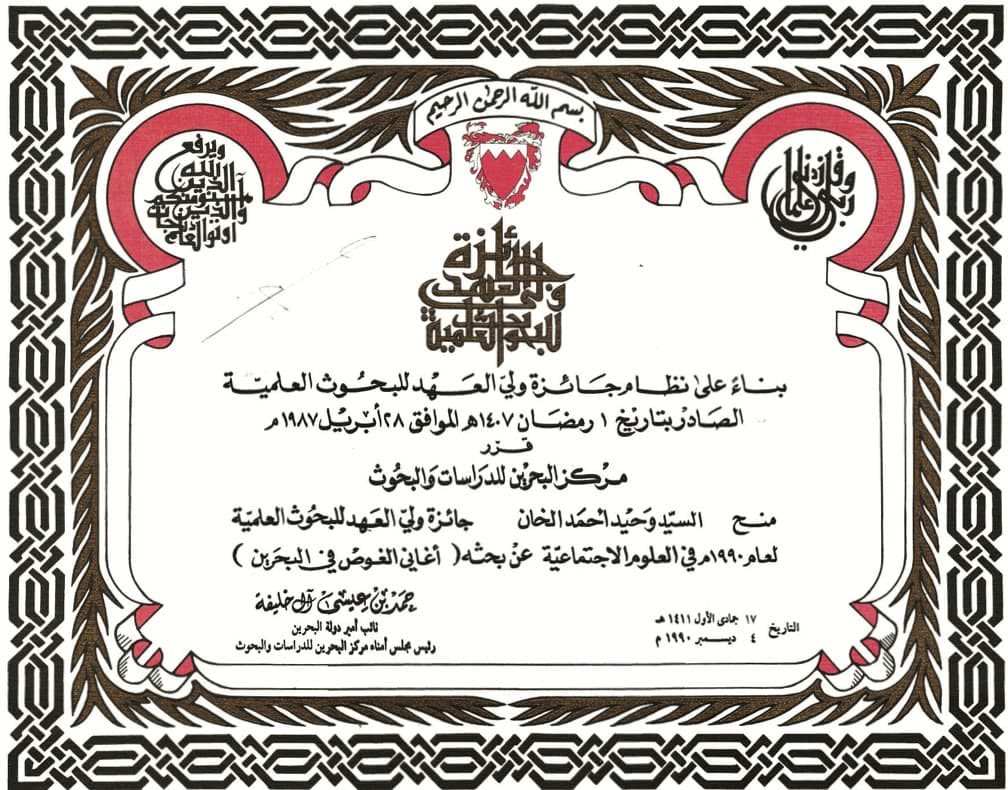 بسم الله الرحمن الرحيم
وقل رب زدني علما
ويرفع
الله
الذين
آمنوا منكم
والذين
أوتوا العلم درجات
جائزة
ولي العهد
للبحوث العلمية
بناءً على نظام جائزة وليّ العهد للبحوث العلميّة
الصادر بتاريخ ١ رمضان ١٤٠٧هـ الموافق ٢٨ أبريل ١٩٨٧م
قرّر
مركز البحرين للدراسات والبحوث
منح السيّد وحيد أحمد الخان جائزة وليّ العهد للبحوث العلميّة
لعام ١٩٩٠م في العلوم الاجتماعيّة عن بحثه ( أغاني الغوص في البحرين )
حمد بن عيسى آل خليفة
نائب أمير دولة البحرين
رئيس مجلس أمناء مركز البحرين للدراسات والبحوث
التاريخ ١٧ جمادى الأول ١٤١١ هـ
٤ ديسمبر ١٩٩٠ م